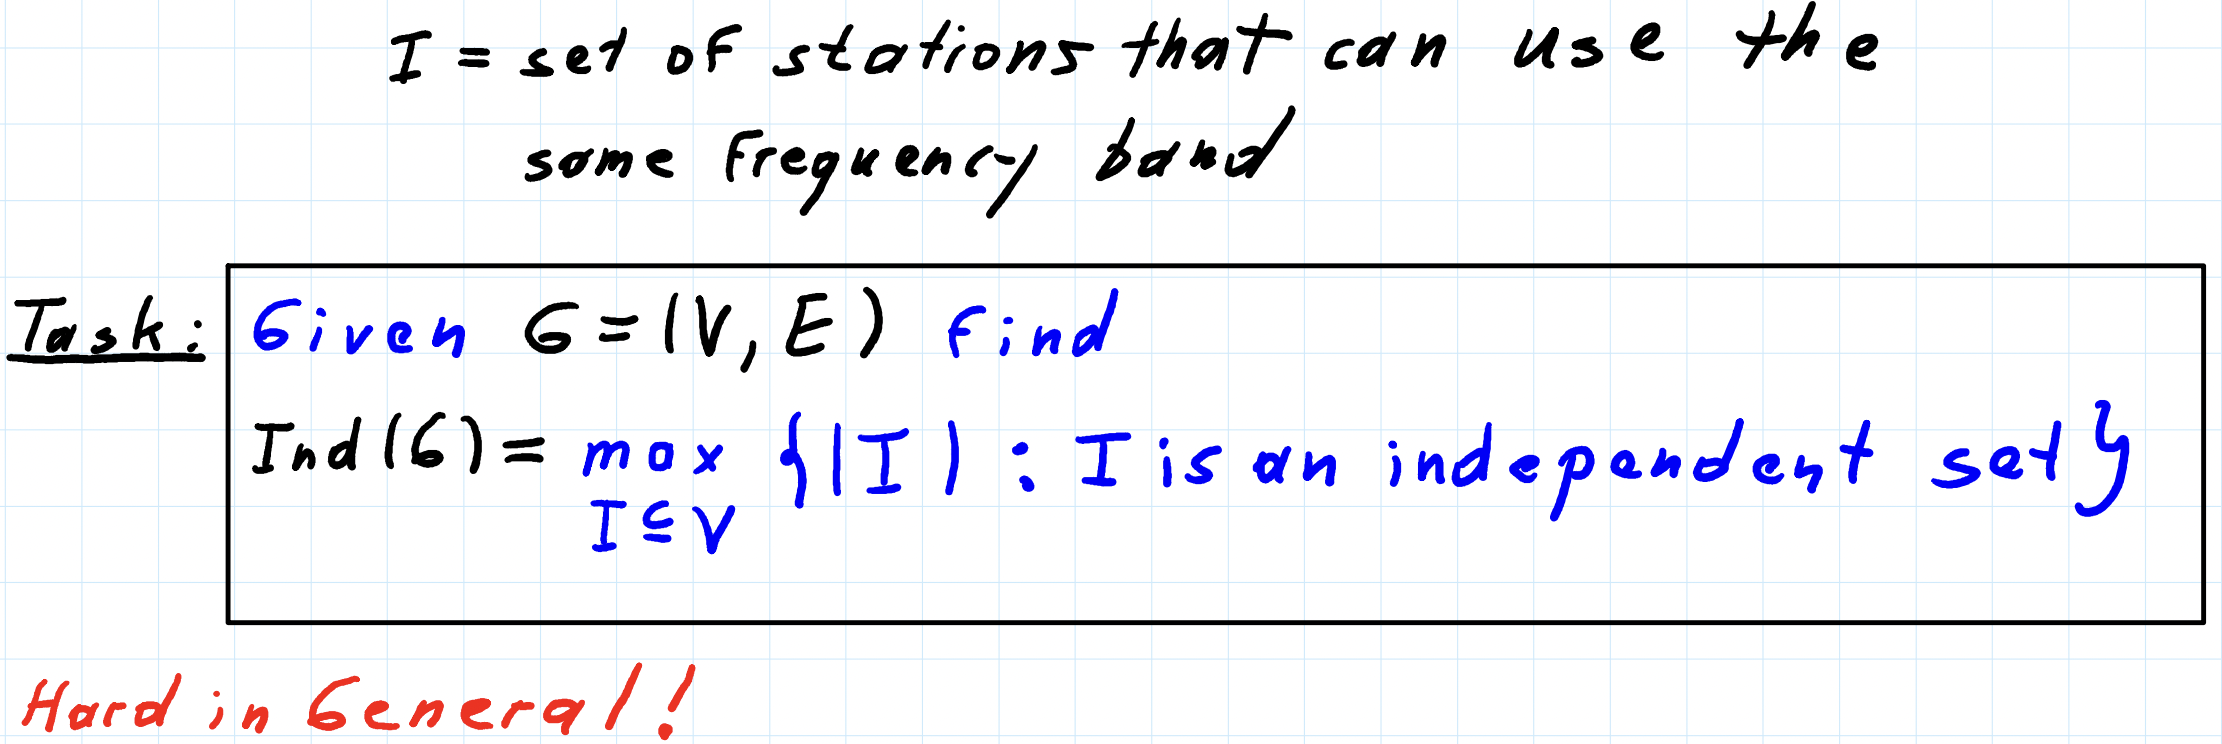 I = set of stations that can use the
same frequency band
Task: Given G = (V, E) find
Ind(G) = max {|I| : I is an independent set}
I ⊆ V
Hard in General!